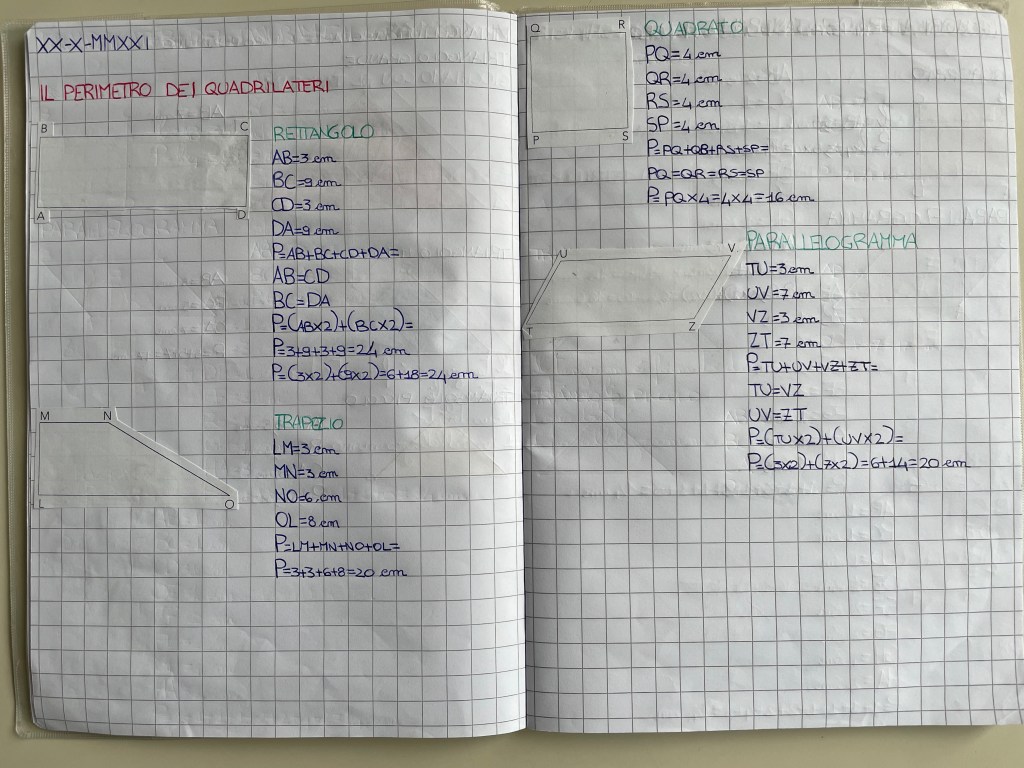 XX-X-MMXXI
IL PERIMETRO DEI QUADRILATERI
B C
A D
RETTANGOLO
AB=3 cm
BC=9 cm
CD=3 cm
DA=9 cm
P=AB+BC+CD+DA=
AB=CD
BC=DA
P=(ABX2)+(BCX2)=
P=3+9+3+9=24 cm
P=(3X2)+(9X2)=6+18=24 cm
M N
L O
TRAPEZIO
LM=3 cm
MN=3 cm
NO=6 cm
OL=8 cm
P=LM+MN+NO+OL=
P=3+3+6+8=20 cm
Q R
P S
QUADRATO
PQ=4 cm
QR=4 cm
RS=4 cm
SP=4 cm
P=PQ+QR+RS+SP=
PQ=QR=RS=SP
P=PQX4=4X4=16 cm
U V
T Z
PARALLELOGRAMMA
TU=3 cm
UV=7 cm
VZ=3 cm
ZT=7 cm
P=TU+UV+VZ+ZT=
TU=VZ
UV=ZT
P=(TUX2)+(UVX2)=
P=(3X2)+(7X2)=6+14=20 cm